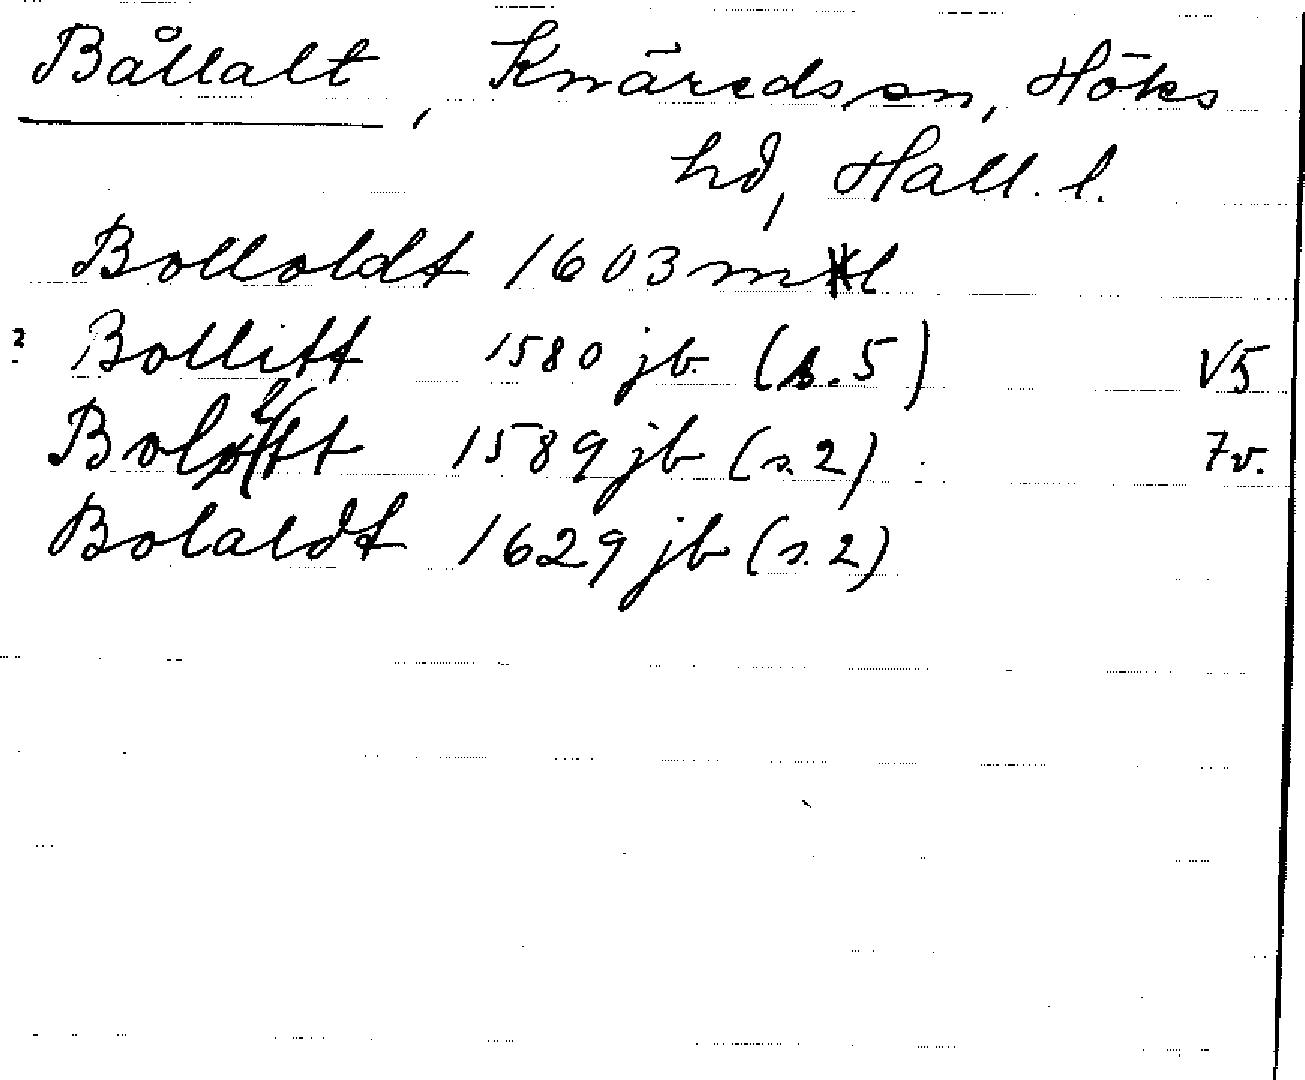 Bållalt, Knäreds sn, Höks
hd, Hall. l.
Bolloldt 1603 mtl
? Bollitt 1580 jb. (s. 5) V5
1589 jb (s. 2) 7v.
Bolaldt 1629 jb (s. 2)